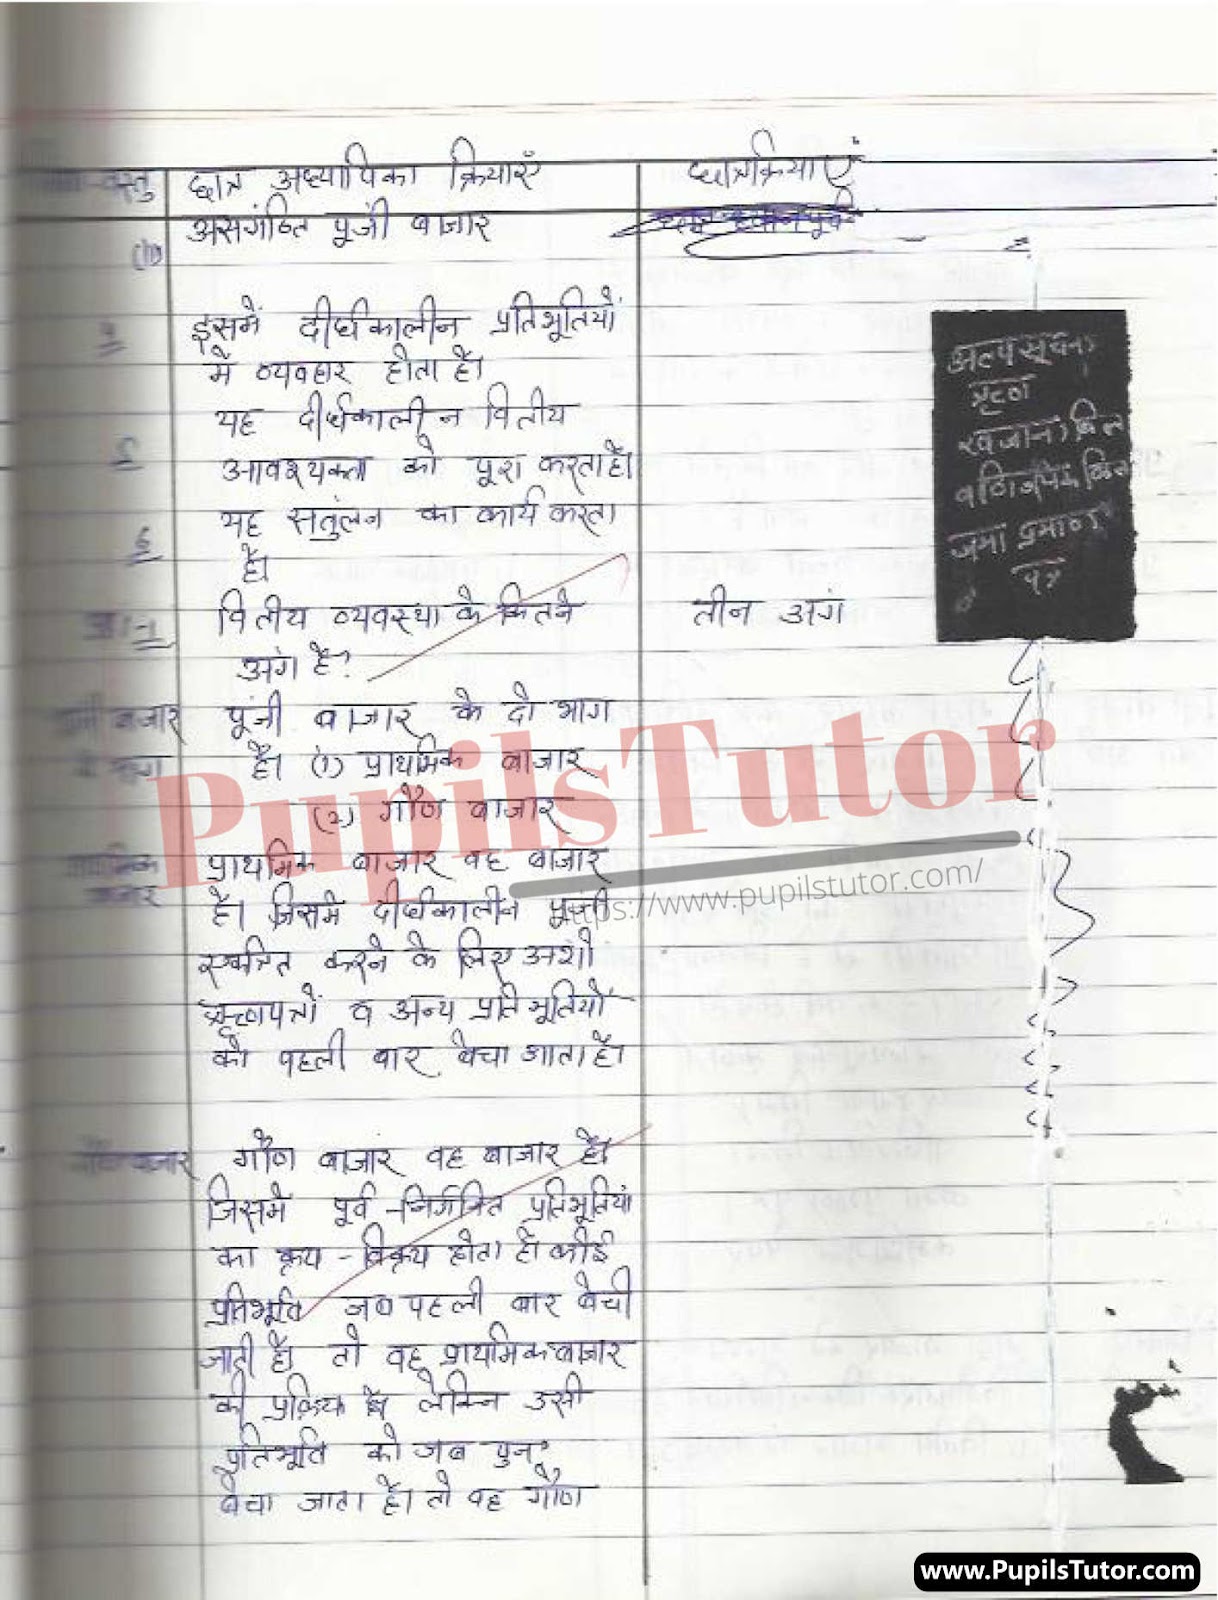 वस्तु छात्र अध्यापिका क्रियाएँ छात्रक्रियाएं
(ii) असगंठित पूंजी बाजार
4 इसमें दीर्घकालीन प्रतिभूतियों
में व्यवहार होता है।
यह दीर्घकालीन वित्तीय
5 आवश्यक्ता को पूरा करता है।
6 यह सतुंलन का कार्य करता
है।
वित्तीय व्यवस्था के कितने तीन अंग
अंग है?
बाजार पूंजी बाजार के दो भाग
है। (1) प्राथमिक बाजार
(2) गौण बाजार
प्राथमिक बाजार वह बाजार
बाजार है। जिसमे दीर्घकालीन पूंजी
एकत्रित करने के लिए अंशो
ऋणपत्रों व अन्य प्रतिभूतियों
को पहली बार बेचा जाता है।
बाजार गौण बाजार वह बाजार है।
जिसमे पूर्व-निर्गमित प्रतिभूतियां
का क्रय-विक्रय होता है। कोई
प्रतिभूति जब पहली बार बेची
जाती है। तो वह प्राथमिक बाजार
की प्रक्रिया है लेकिन उसी
प्रतिभूति को जब पुनः
बेचा जाता है। तो वह गौण
अल्प सूचना
ऋण
खजाना बिल
जमा प्रमाण
पत्र
PupilsTutor
https://www.pupilstutor.com/
www.PupilsTutor.com